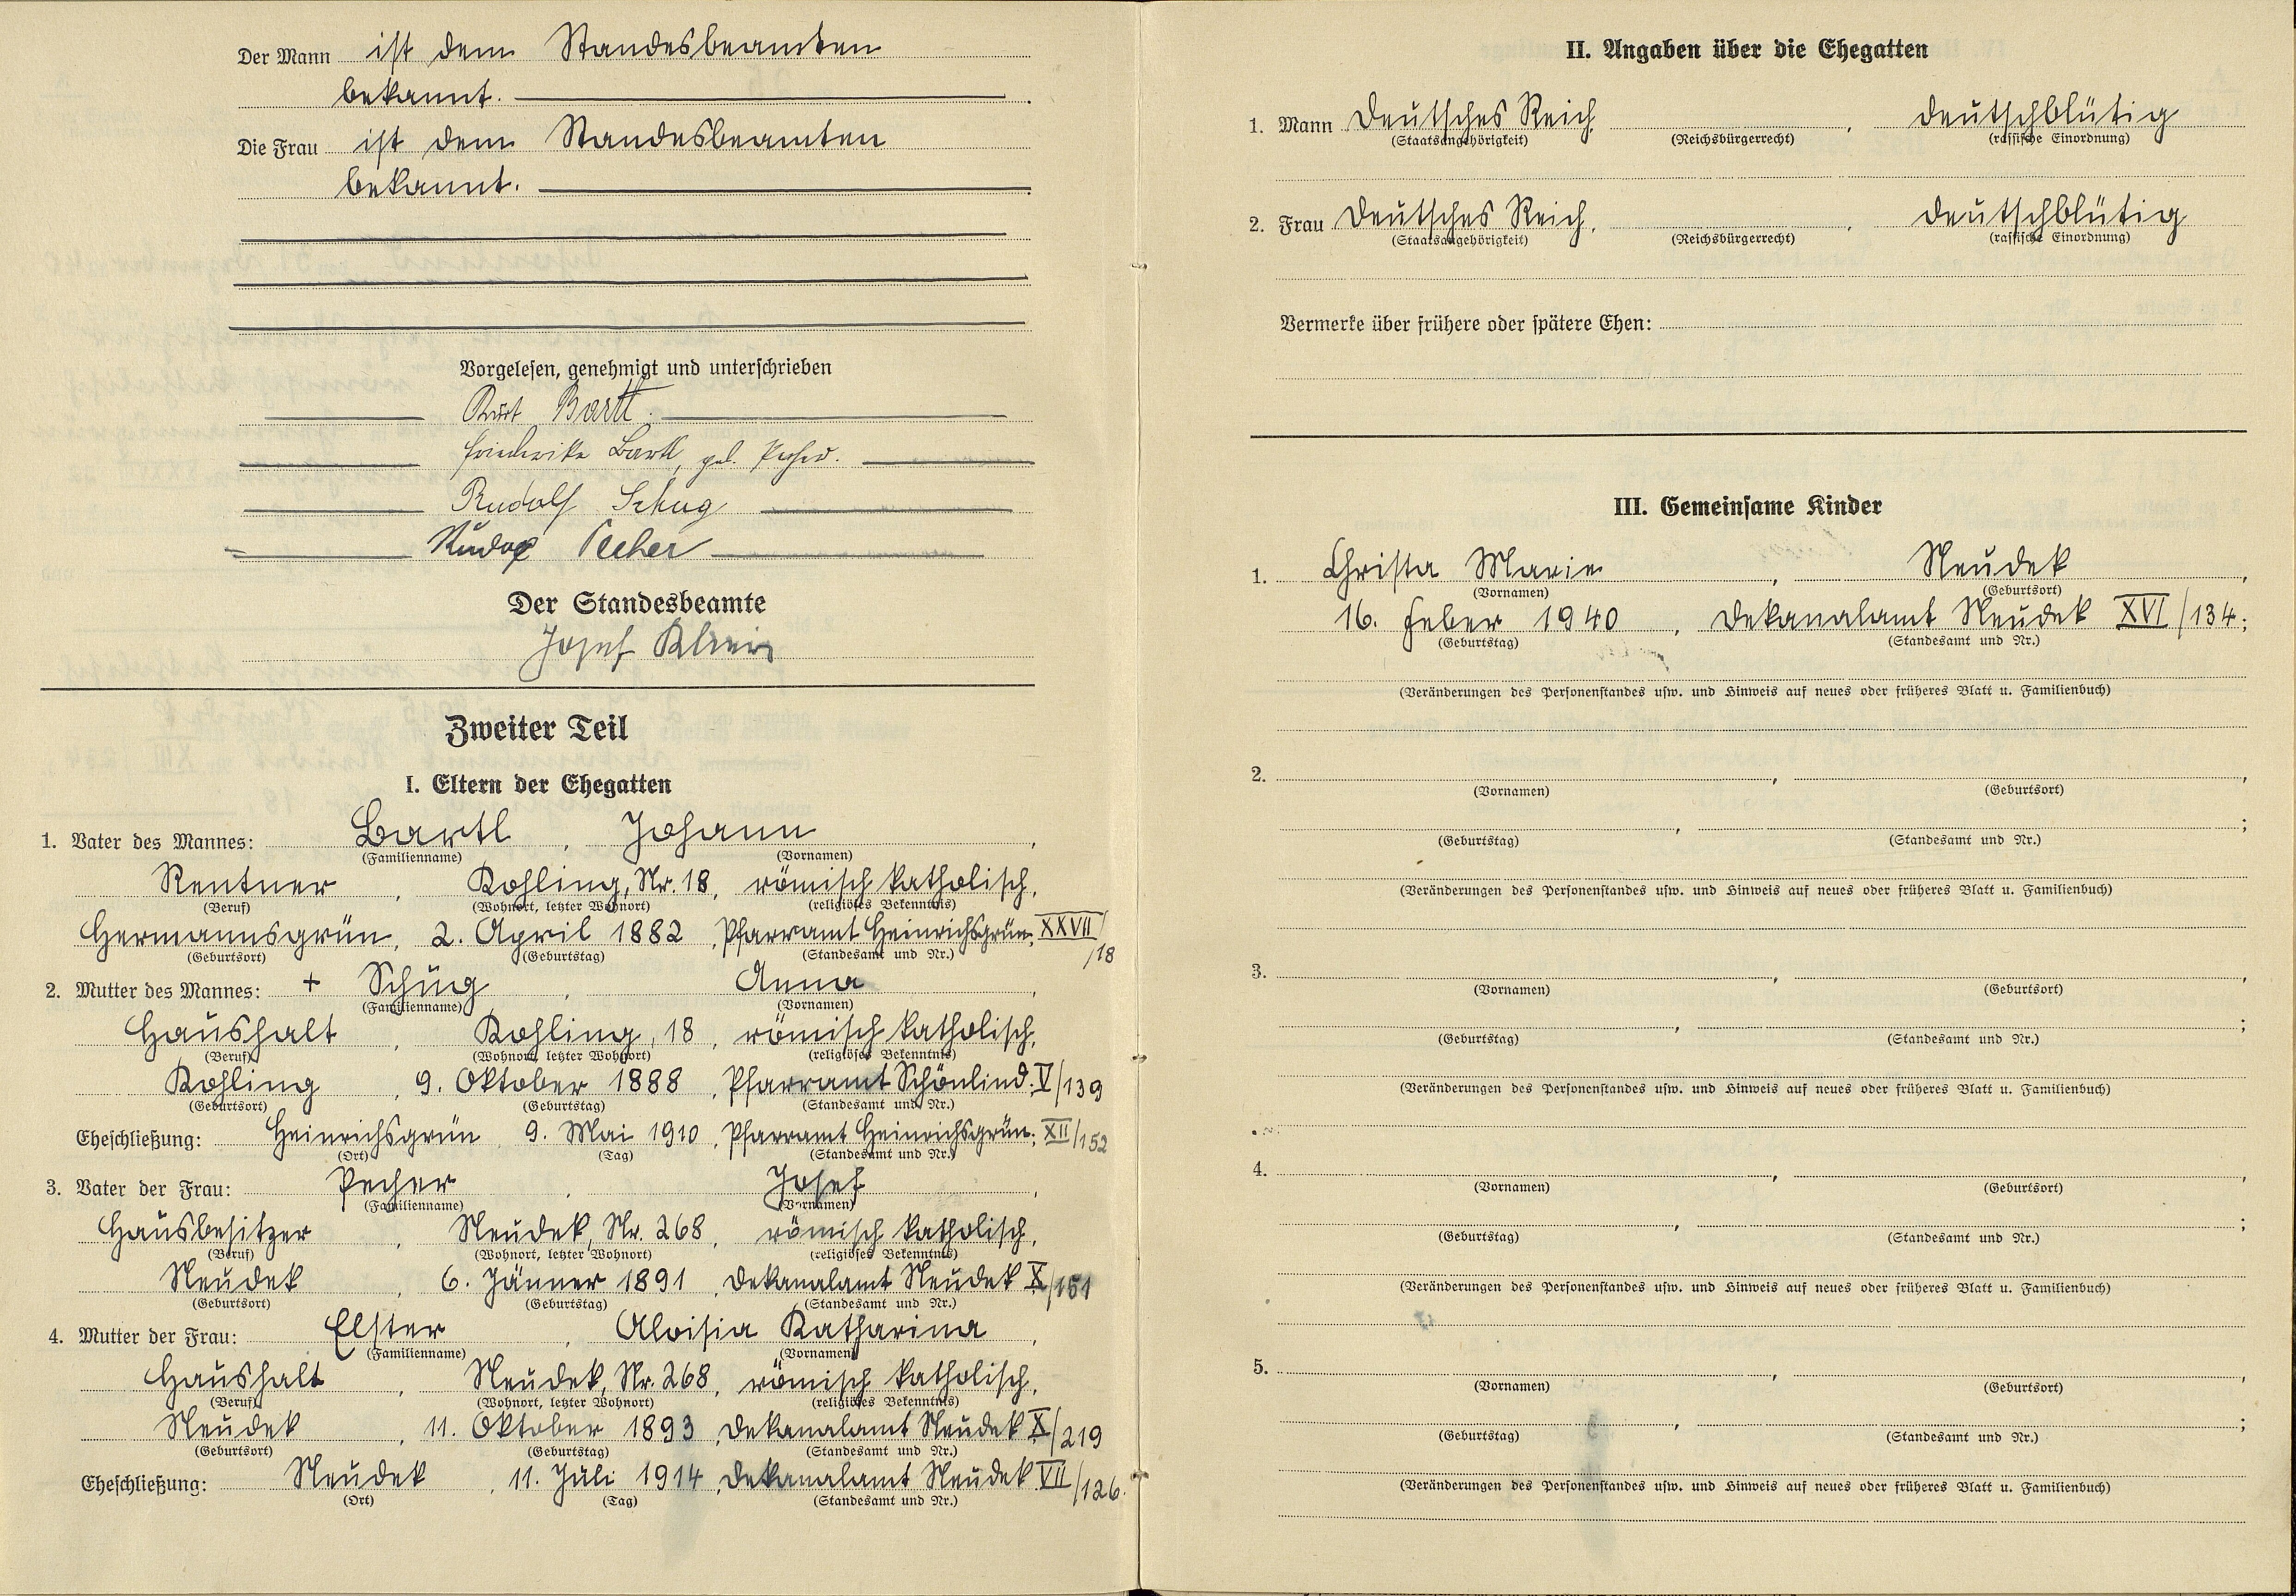 Der Mann ist dem Standesbeamten
bekannt.
Die Frau ist dem Standesbeamten
bekannt.
Vorgelesen, genehmigt und unterschrieben
Kurt Bartl.
Friederike Bartl, geb. Pecher.
Rudolf Schug
Rudolf Pecher
Der Standesbeamte
Josef
Zweiter Teil
I. Eltern der Ehegatten
1. Vater des Mannes: Bartl, Johann,
(Familienname) (Vornamen)
Rentner, Kohling, Nr. 18, römisch katholisch,
(Beruf) (Wohnort, letzter Wohnort) (religiöses Bekenntnis)
Hermannsgrün, 2. April 1882, Pfarramt Heinrichsgrün, XXVII/
(Geburtsort) (Geburtstag) (Standesamt und Nr.) /18
2. Mutter des Mannes: + Schug, Anna,
(Familienname) (Vornamen)
Haushalt, Kohling, 18, römisch katholisch,
(Beruf) (Wohnort, letzter Wohnort) (religiöses Bekenntnis)
Kohling, 9. Oktober 1888, Pfarramt Schönlind. V/139
(Geburtsort) (Geburtstag) (Standesamt und Nr.)
Eheschließung: Heinrichsgrün, 9. Mai 1910, Pfarramt Heinrichsgrün; XII/152
(Ort) (Tag) (Standesamt und Nr.)
3. Vater der Frau: Pecher, Josef,
(Familienname) (Vornamen)
Hausbesitzer, Neudek, Nr. 268, römisch katholisch,
(Beruf) (Wohnort, letzter Wohnort) (religiöses Bekenntnis)
Neudek, 6. Jänner 1891, Dekanalamt Neudek X/151
(Geburtsort) (Geburtstag) (Standesamt und Nr.)
4. Mutter der Frau: Elster, Aloisia Katharina,
(Familienname) (Vornamen)
Haushalt, Neudek, Nr. 268, römisch katholisch,
(Beruf) (Wohnort, letzter Wohnort) (religiöses Bekenntnis)
Neudek, 11. Oktober 1893, Dekanalamt Neudek X/219
(Geburtsort) (Geburtstag) (Standesamt und Nr.)
Eheschließung: Neudek, 11. Juli 1914, Dekanalamt Neudek VII/126.
(Ort) (Tag) (Standesamt und Nr.)
II. Angaben über die Ehegatten
1. Mann Deutsches Reich, , deutschblütig
(Staatsangehörigkeit) (Reichsbürgerrecht) (rassische Einordnung)
2. Frau Deutsches Reich, , deutschblütig
(Staatsangehörigkeit) (Reichsbürgerrecht) (rassische Einordnung)
Vermerke über frühere oder spätere Ehen:
III. Gemeinsame Kinder
1. Christa Marie, Neudek,
(Vornamen) (Geburtsort)
16. Feber 1940, Dekanalamt Neudek XVI/134;
(Geburtstag) (Standesamt und Nr.)
(Veränderungen des Personenstandes usw. und Hinweis auf neues oder früheres Blatt u. Familienbuch)
2. , ,
(Vornamen) (Geburtsort)
, ;
(Geburtstag) (Standesamt und Nr.)
(Veränderungen des Personenstandes usw. und Hinweis auf neues oder früheres Blatt u. Familienbuch)
3. , ,
(Vornamen) (Geburtsort)
, ;
(Geburtstag) (Standesamt und Nr.)
(Veränderungen des Personenstandes usw. und Hinweis auf neues oder früheres Blatt u. Familienbuch)
4. , ,
(Vornamen) (Geburtsort)
, ;
(Geburtstag) (Standesamt und Nr.)
(Veränderungen des Personenstandes usw. und Hinweis auf neues oder früheres Blatt u. Familienbuch)
5. , ,
(Vornamen) (Geburtsort)
, ;
(Geburtstag) (Standesamt und Nr.)
(Veränderungen des Personenstandes usw. und Hinweis auf neues oder früheres Blatt u. Familienbuch)